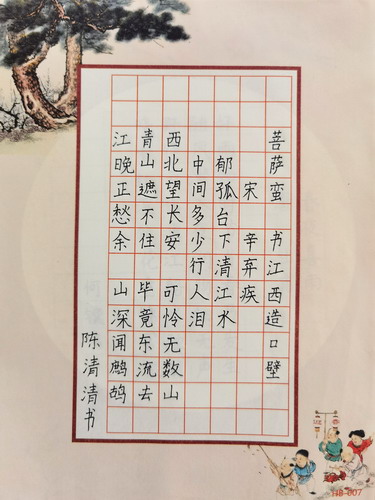 菩萨蛮 书江西造口壁
宋 辛弃疾
郁孤台下清江水
中间多少行人泪
西北望长安 可怜无数山
青山遮不住 毕竟东流去
江晚正愁余 山深闻鹧鸪
陈清清书
HB-007